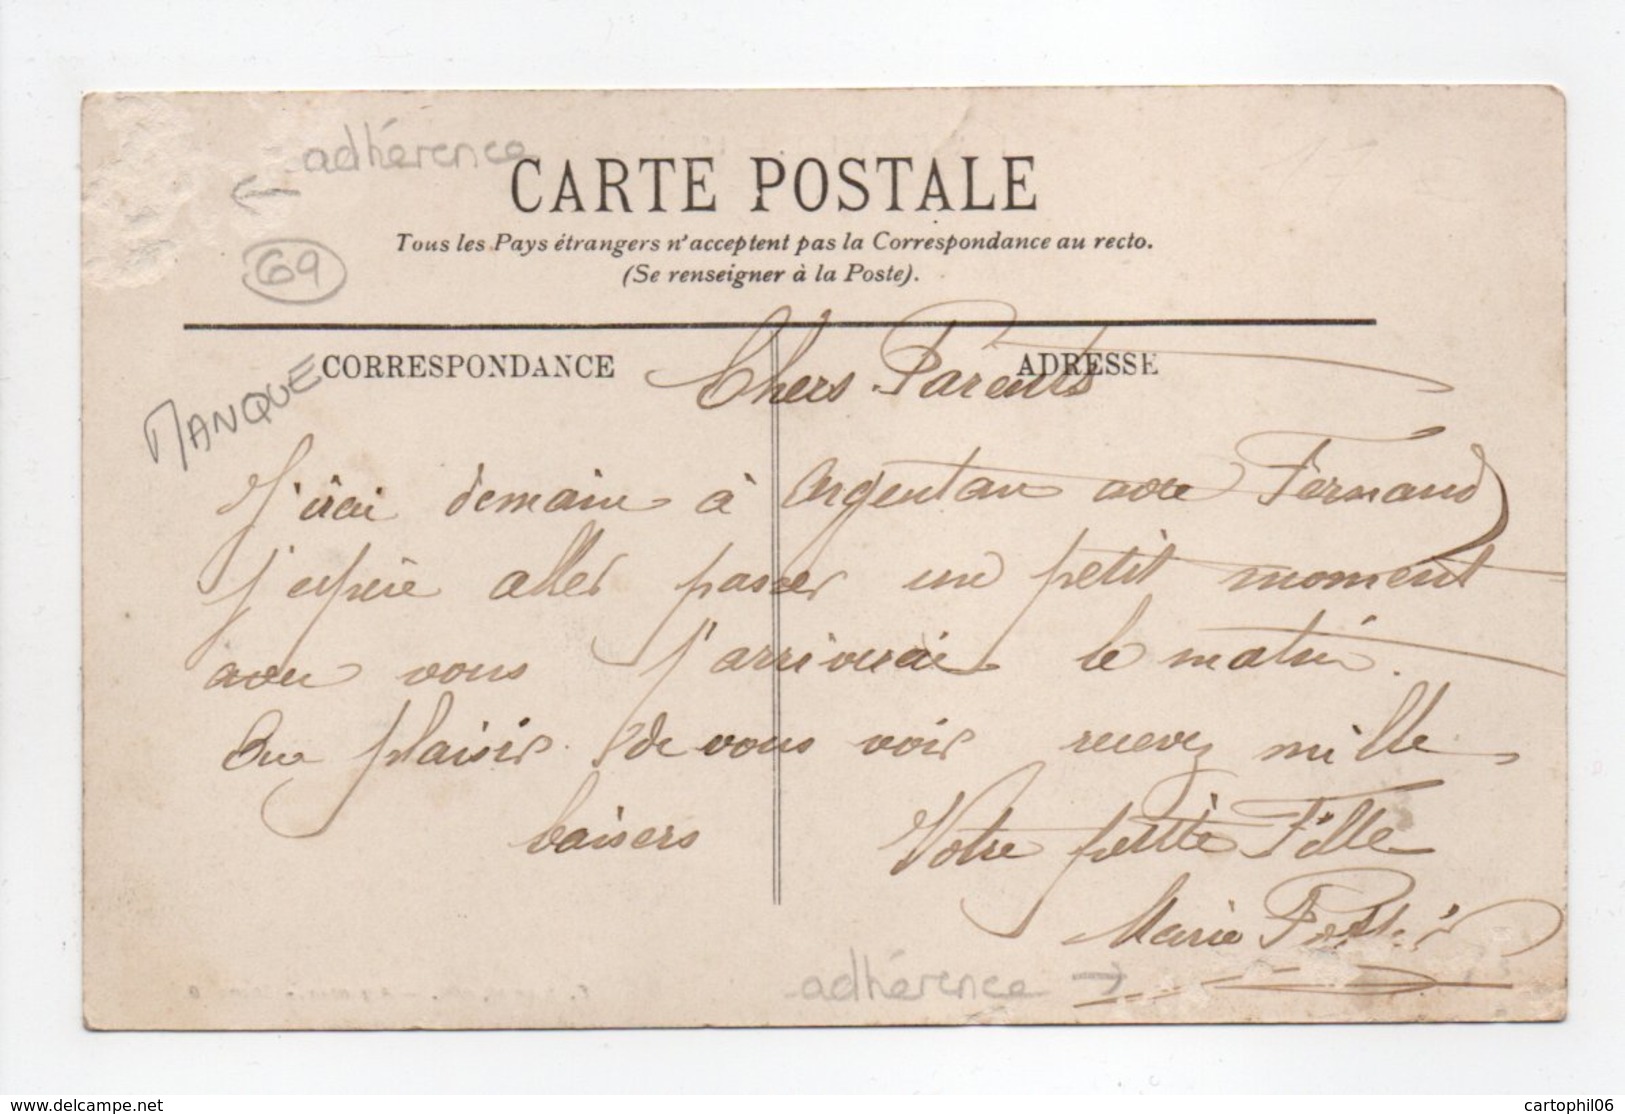 adhérence
←
CARTE POSTALE
Tous les Pays étrangers n'acceptent pas la Correspondance au recto.
(Se renseigner à la Poste).
69
MANQUE
CORRESPONDANCE
ADRESSE
Chers Parents
J'irai demain à Argentan avec Fernand
j'espère aller passer un petit moment
avec vous j'arriverai le matin.
Au plaisir de vous voir recevez mille
baisers
Votre petite Fille
Marie
adhérence →
www.delcampe.net
cartophil06